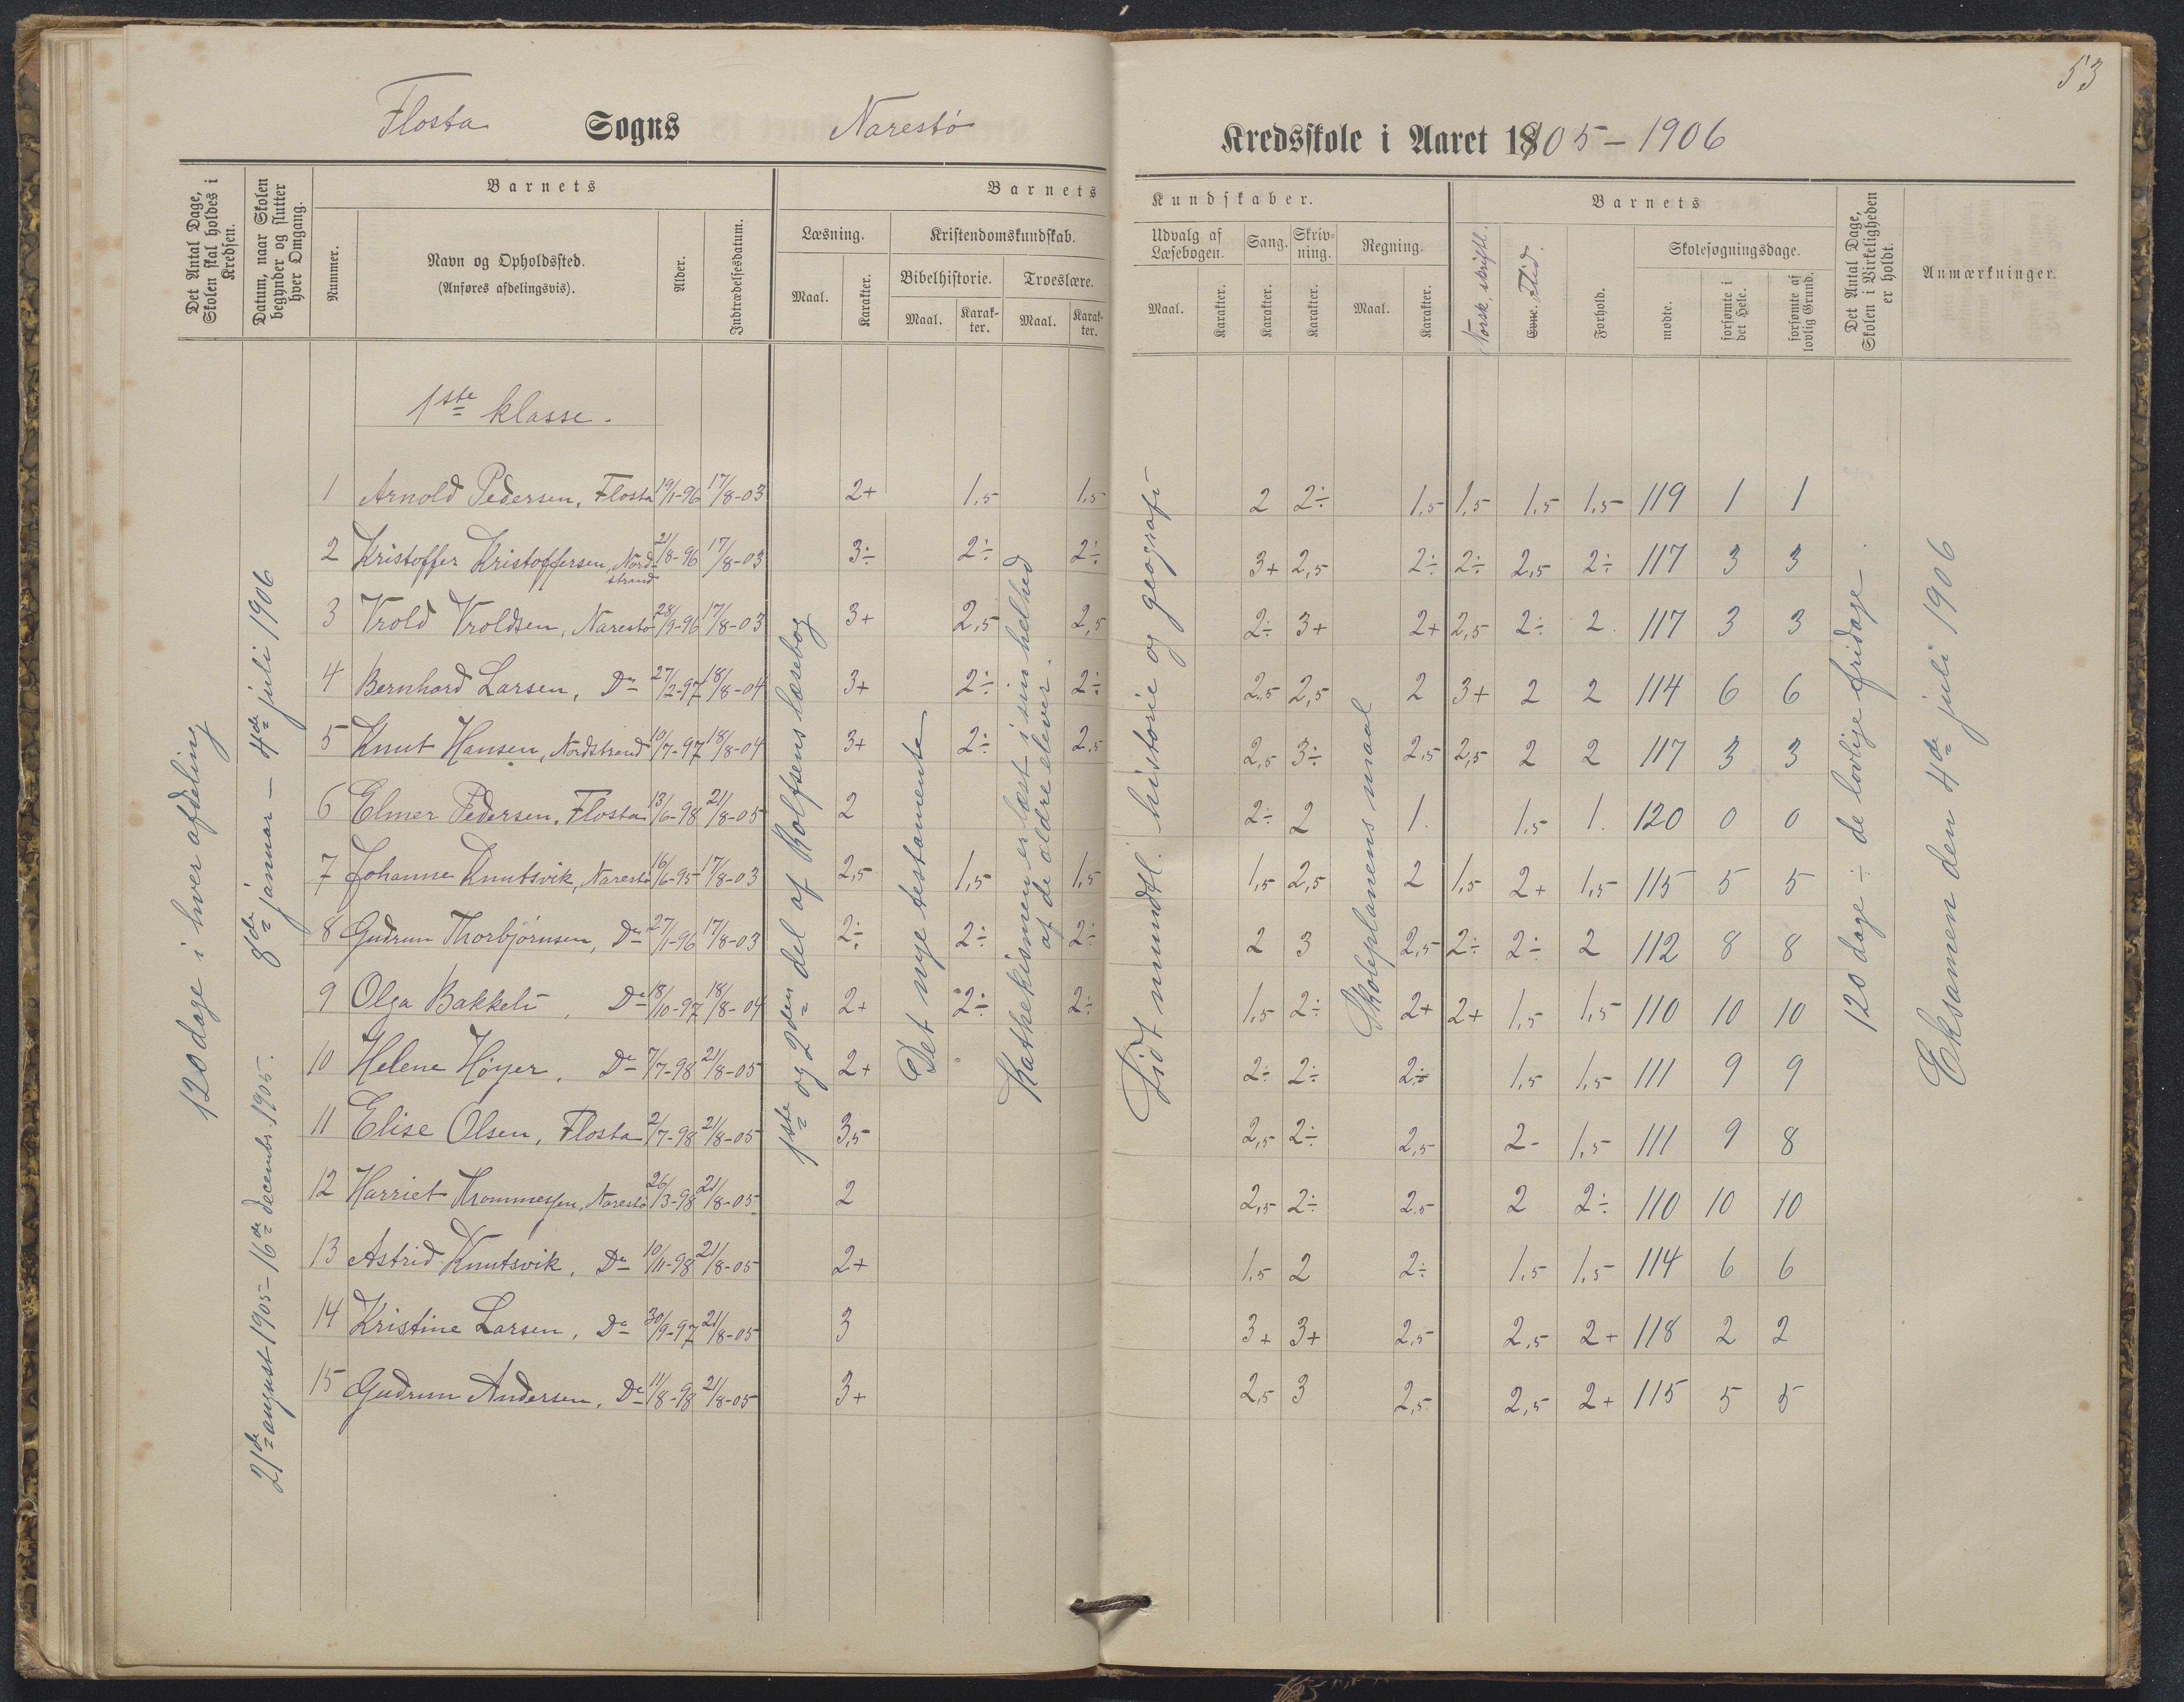 53
Flosta Sogns Narestø Kredsskole i Aaret 1905-1906
Det Antal Dage, Skolen skal holdes i Kredsen.
Datum, naar Skolen begynder og slutter hver Omgang.
Barnets
Nummer.
Navn og Opholdssted.
(Anføres afdelingsvis).
Alder.
Indtrædelsesdatum.
Barnets Kundskaber.
Læsning.
Maal.
Karakter.
Kristendomskundskab.
Bibelhistorie.
Maal.
Karakter.
Troeslære.
Maal.
Karakter.
Udvalg af Læsebogen.
Maal.
Karakter.
Sang.
Karakter.
Skrivning.
Karakter.
Regning.
Maal.
Karakter.
Barnets
Norsk, skriftl.
Evne. Flid.
Forhold.
Skolesøgningsdage.
mødte.
forsømte i det Hele.
forsømte af lovlig Grund.
Det Antal Dage, Skolen i Virkeligheden er holdt.
Anmærkninger.
1ste klasse.
1 Arnold Pedersen, Flosta 19/1-96 17/8-03 2+ 1,5 1,5 2 2÷ 1,5 1,5 1,5 1,5 119 1 1
2 Kristoffer Kristoffersen, Nordstrand 21/8-96 17/8-03 3÷ 2÷ 2÷ 3+ 2,5 2÷ 2÷ 2,5 2÷ 117 3 3
3 Vrold Vroldsen, Narestø 28/9-96 17/8-03 3+ 2,5 2,5 2÷ 3+ 2+ 2,5 2÷ 2. 117 3 3
4 Bernhard Larsen, Do 27/2-97 18/8-04 3+ 2÷ 2÷ 2,5 2,5 2 3+ 2 2 114 6 6
5 Knut Hansen, Nordstrand 10/7-97 18/8-04 3+ 2÷ 2,5 2,5 3÷ 2,5 2,5 2 2 117 3 3
6 Elmer Pedersen, Flosta 13/6-98 21/8-05 2 2÷ 2 1. 1,5 1. 120 0 0
7 Johanne Knutsvik, Narestø 16/6-95 17/8-03 2,5 1,5 1,5 1,5 2,5 2 1,5 2+ 1,5 115 5 5
8 Gudrun Thorbjørnsen, Do 27/1-96 17/8-03 2÷ 2÷ 2÷ 2 3 2,5 2÷ 2÷ 2 112 8 8
9 Olga Bakkeli, Do 18/10-97 18/8-04 2+ 2÷ 2÷ 1,5 2÷ 2+ 2+ 1,5 1,5 110 10 10
10 Helene Høyer, Do 7/7-98 21/8-05 2+ 2÷ 2÷ 2÷ 1,5 1,5 111 9 9
11 Elise Olsen, Flosta 2/7-98 21/8-05 3,5 2,5 2÷ 2,5 2- 1,5 111 9 8
12 Harriet Thommesen, Narestø 26/3-98 21/8-05 2 2,5 2÷ 2,5 2 2÷ 110 10 10
13 Astrid Knutsvik, Do 10/11-98 21/8-05 2+ 1,5 2 2÷ 1,5 1,5 114 6 6
14 Kristine Larsen, Do 30/9-97 21/8-05 3 3+ 3+ 2,5 2,5 2+ 118 2 2
15 Gudrun Andersen, Do 11/8-98 21/8-05 3+ 2,5 3 2,5 2,5 2+ 115 5 5
120 dage i hver afdeling
21de august 1905 - 16de decembr. 1905.
8de januar - 4de juli 1906
1ste og 2den del af Rolfsens læsebog
Det nye testamente
Kathekismen er læst i sin helhed
af de ældre elever.
Lidt mundtl. historie og geografi
Skoleplanens maal
120 dage ÷ de lovlige fridage.
Eksamen den 4de juli 1906